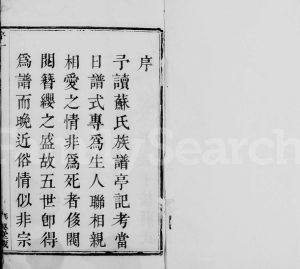 序
予讀蘇氏族譜亭記考當
日譜式專爲生人聯相親
相愛之情非爲死者侈閥
閱簪纓之盛故五世卽得
爲譜而晚近俗情似非宗
FamilySearch